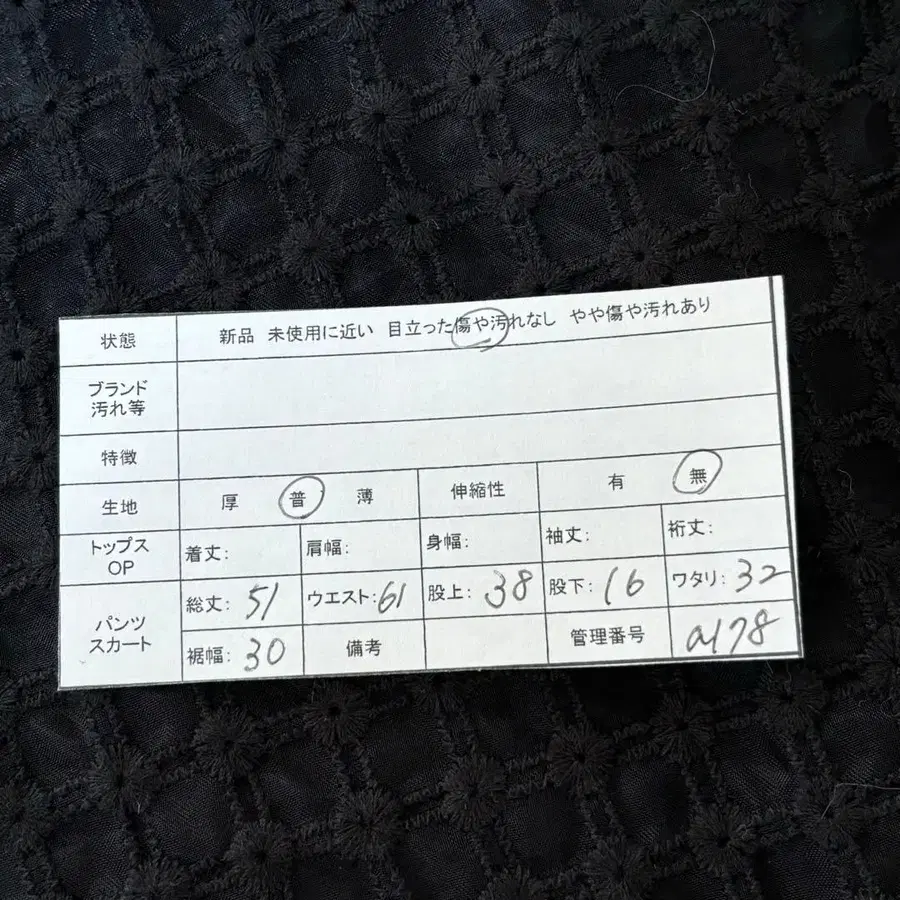 状態 新品 未使用に近い 目立った傷や汚れなし やや傷や汚れあり
ブランド
汚れ等
特徴
生地 厚 普 薄 伸縮性 有 無
トップス
OP
着丈: 肩幅: 身幅: 袖丈: 裄丈:
パンツ
スカート
総丈: 51 ウエスト: 61 股上: 38 股下: 16 ワタリ: 32
裾幅: 30 備考 管理番号 a178